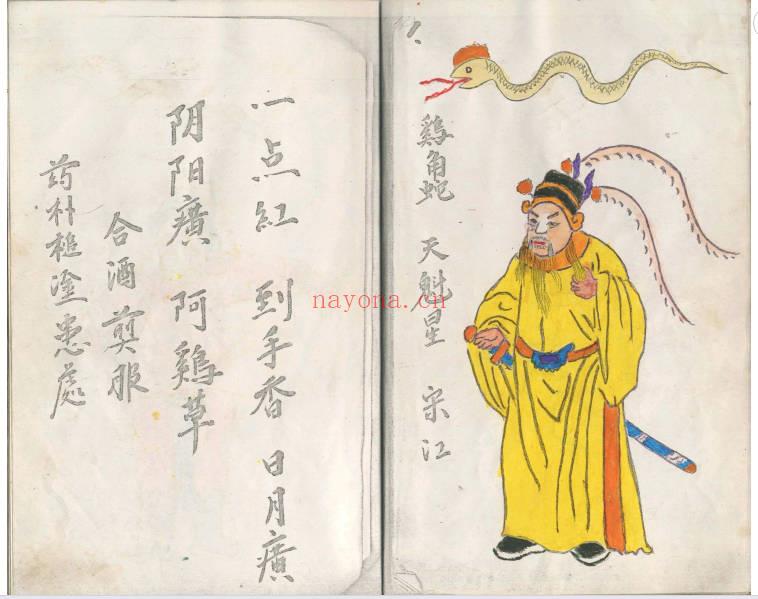 1、
鷄角蛇 天魁星 宋江
一点紅 到手香 日月癀
阴阳癀 阿鷄草
合酒煎服
药朴槌塗患處
nayona.cn